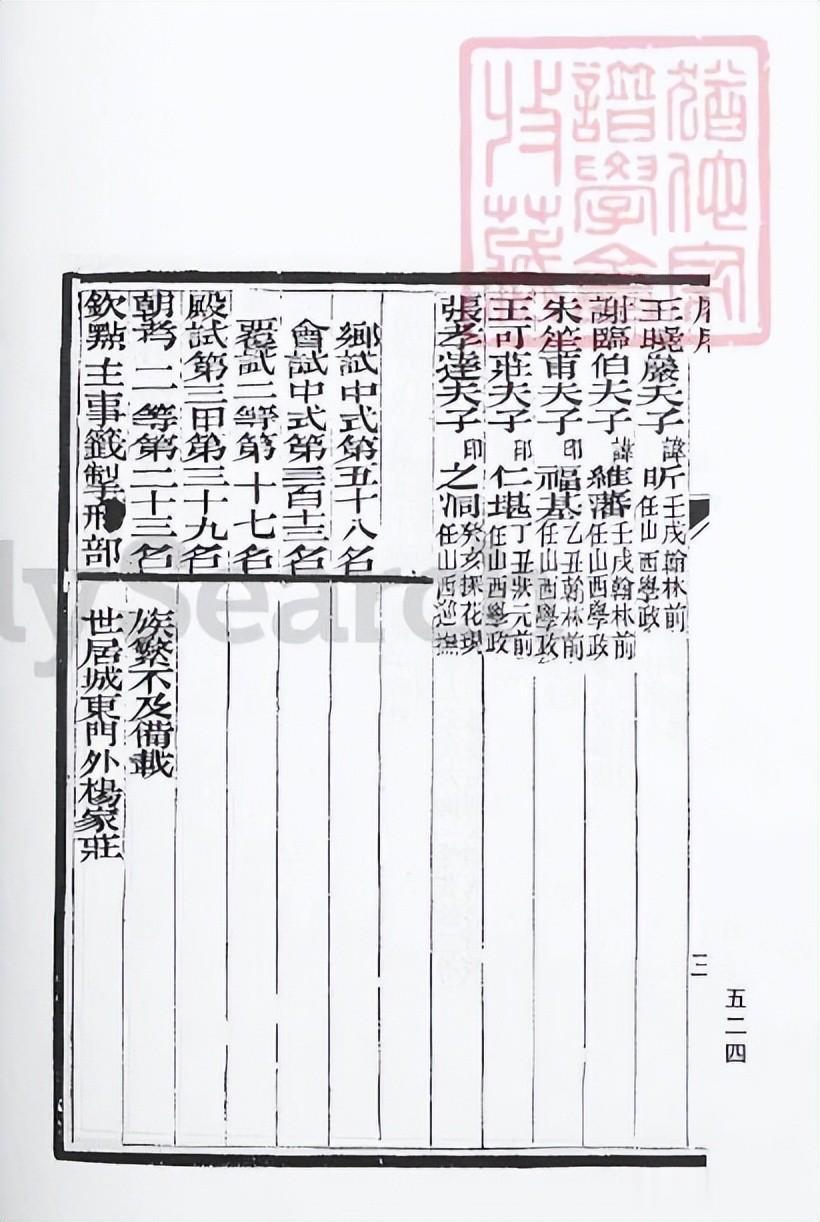 王曉巖夫子 諱 昕 壬戌翰林前任山西學政
謝臨伯夫子 諱 維藩 壬戌翰林前任山西學政
朱笙甫夫子 印 福基 乙丑翰林前任山西學政
王可莊夫子 印 仁堪 丁丑狀元前任山西學政
張孝達夫子 印 之洞 癸亥探花現任山西巡撫
鄉試中式第五十八名
會試中式第三百十三名
覆試二等第十七名
殿試第三甲第三十九名
朝考二等第二十三名
欽點主事籤掣刑部
族繁不及備載
世居城東門外楊家莊
三
五二四